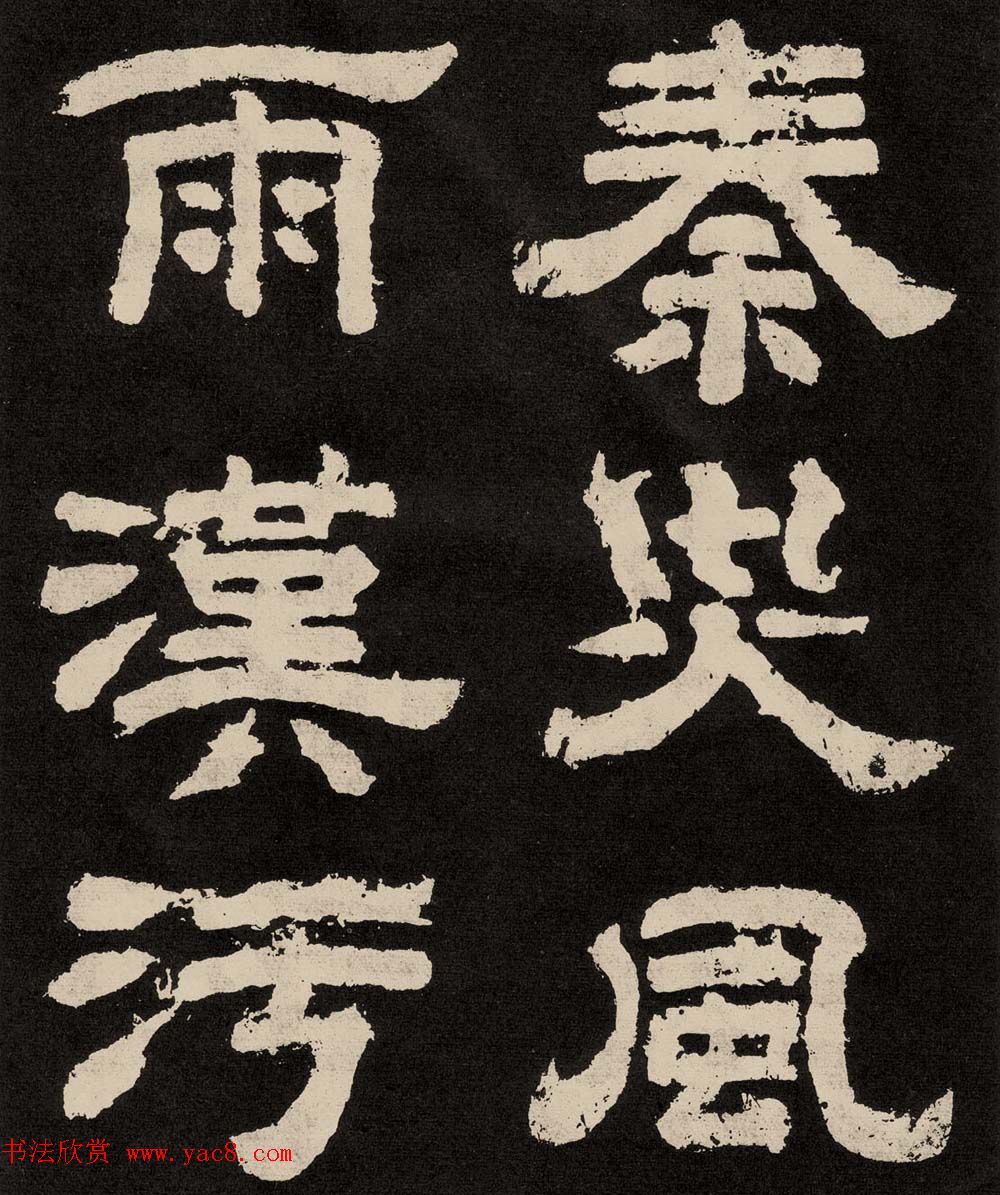 秦災風
雨漢污
书法欣赏 www.yac8.com